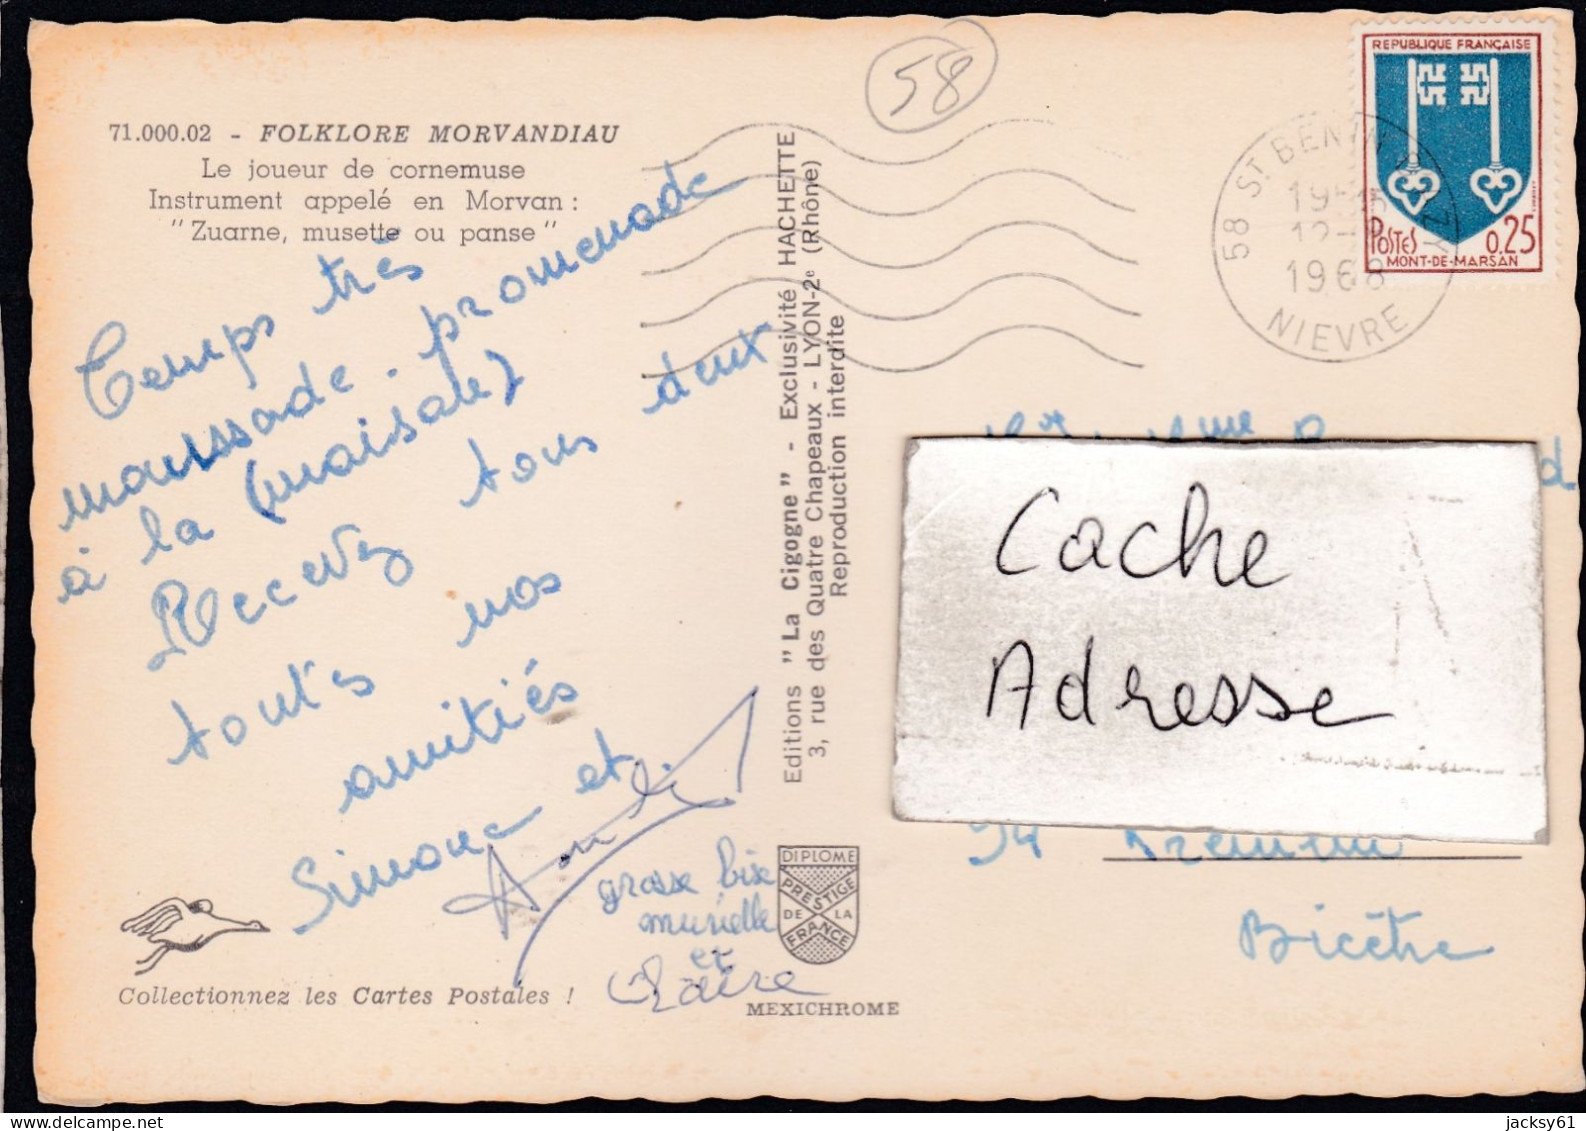 58
71.000.02 - FOLKLORE MORVANDIAU
Le joueur de cornemuse
Instrument appelé en Morvan :
"Zuarne, musette ou panse"
Temps très
maussade. promenade
à la (maisale)
Recevez tous deux
tout's nos
amitiés
Simone et
grosse bise
murielle
et
Claire
Collectionnez les Cartes Postales !
Editions "La Cigogne" - Exclusivité HACHETTE
3, rue des Quatre Chapeaux - LYON-2e (Rhône)
Reproduction interdite
DIPLOME
PRESTIGE
DE LA
FRANCE
MEXICHROME
58 ST BENIN D'AZY
1968
NIEVRE
REPUBLIQUE FRANÇAISE
POSTES 0,25
MONT-DE-MARSAN
Cache
Adresse
94 Kremlin
Bicêtre
jacksy61